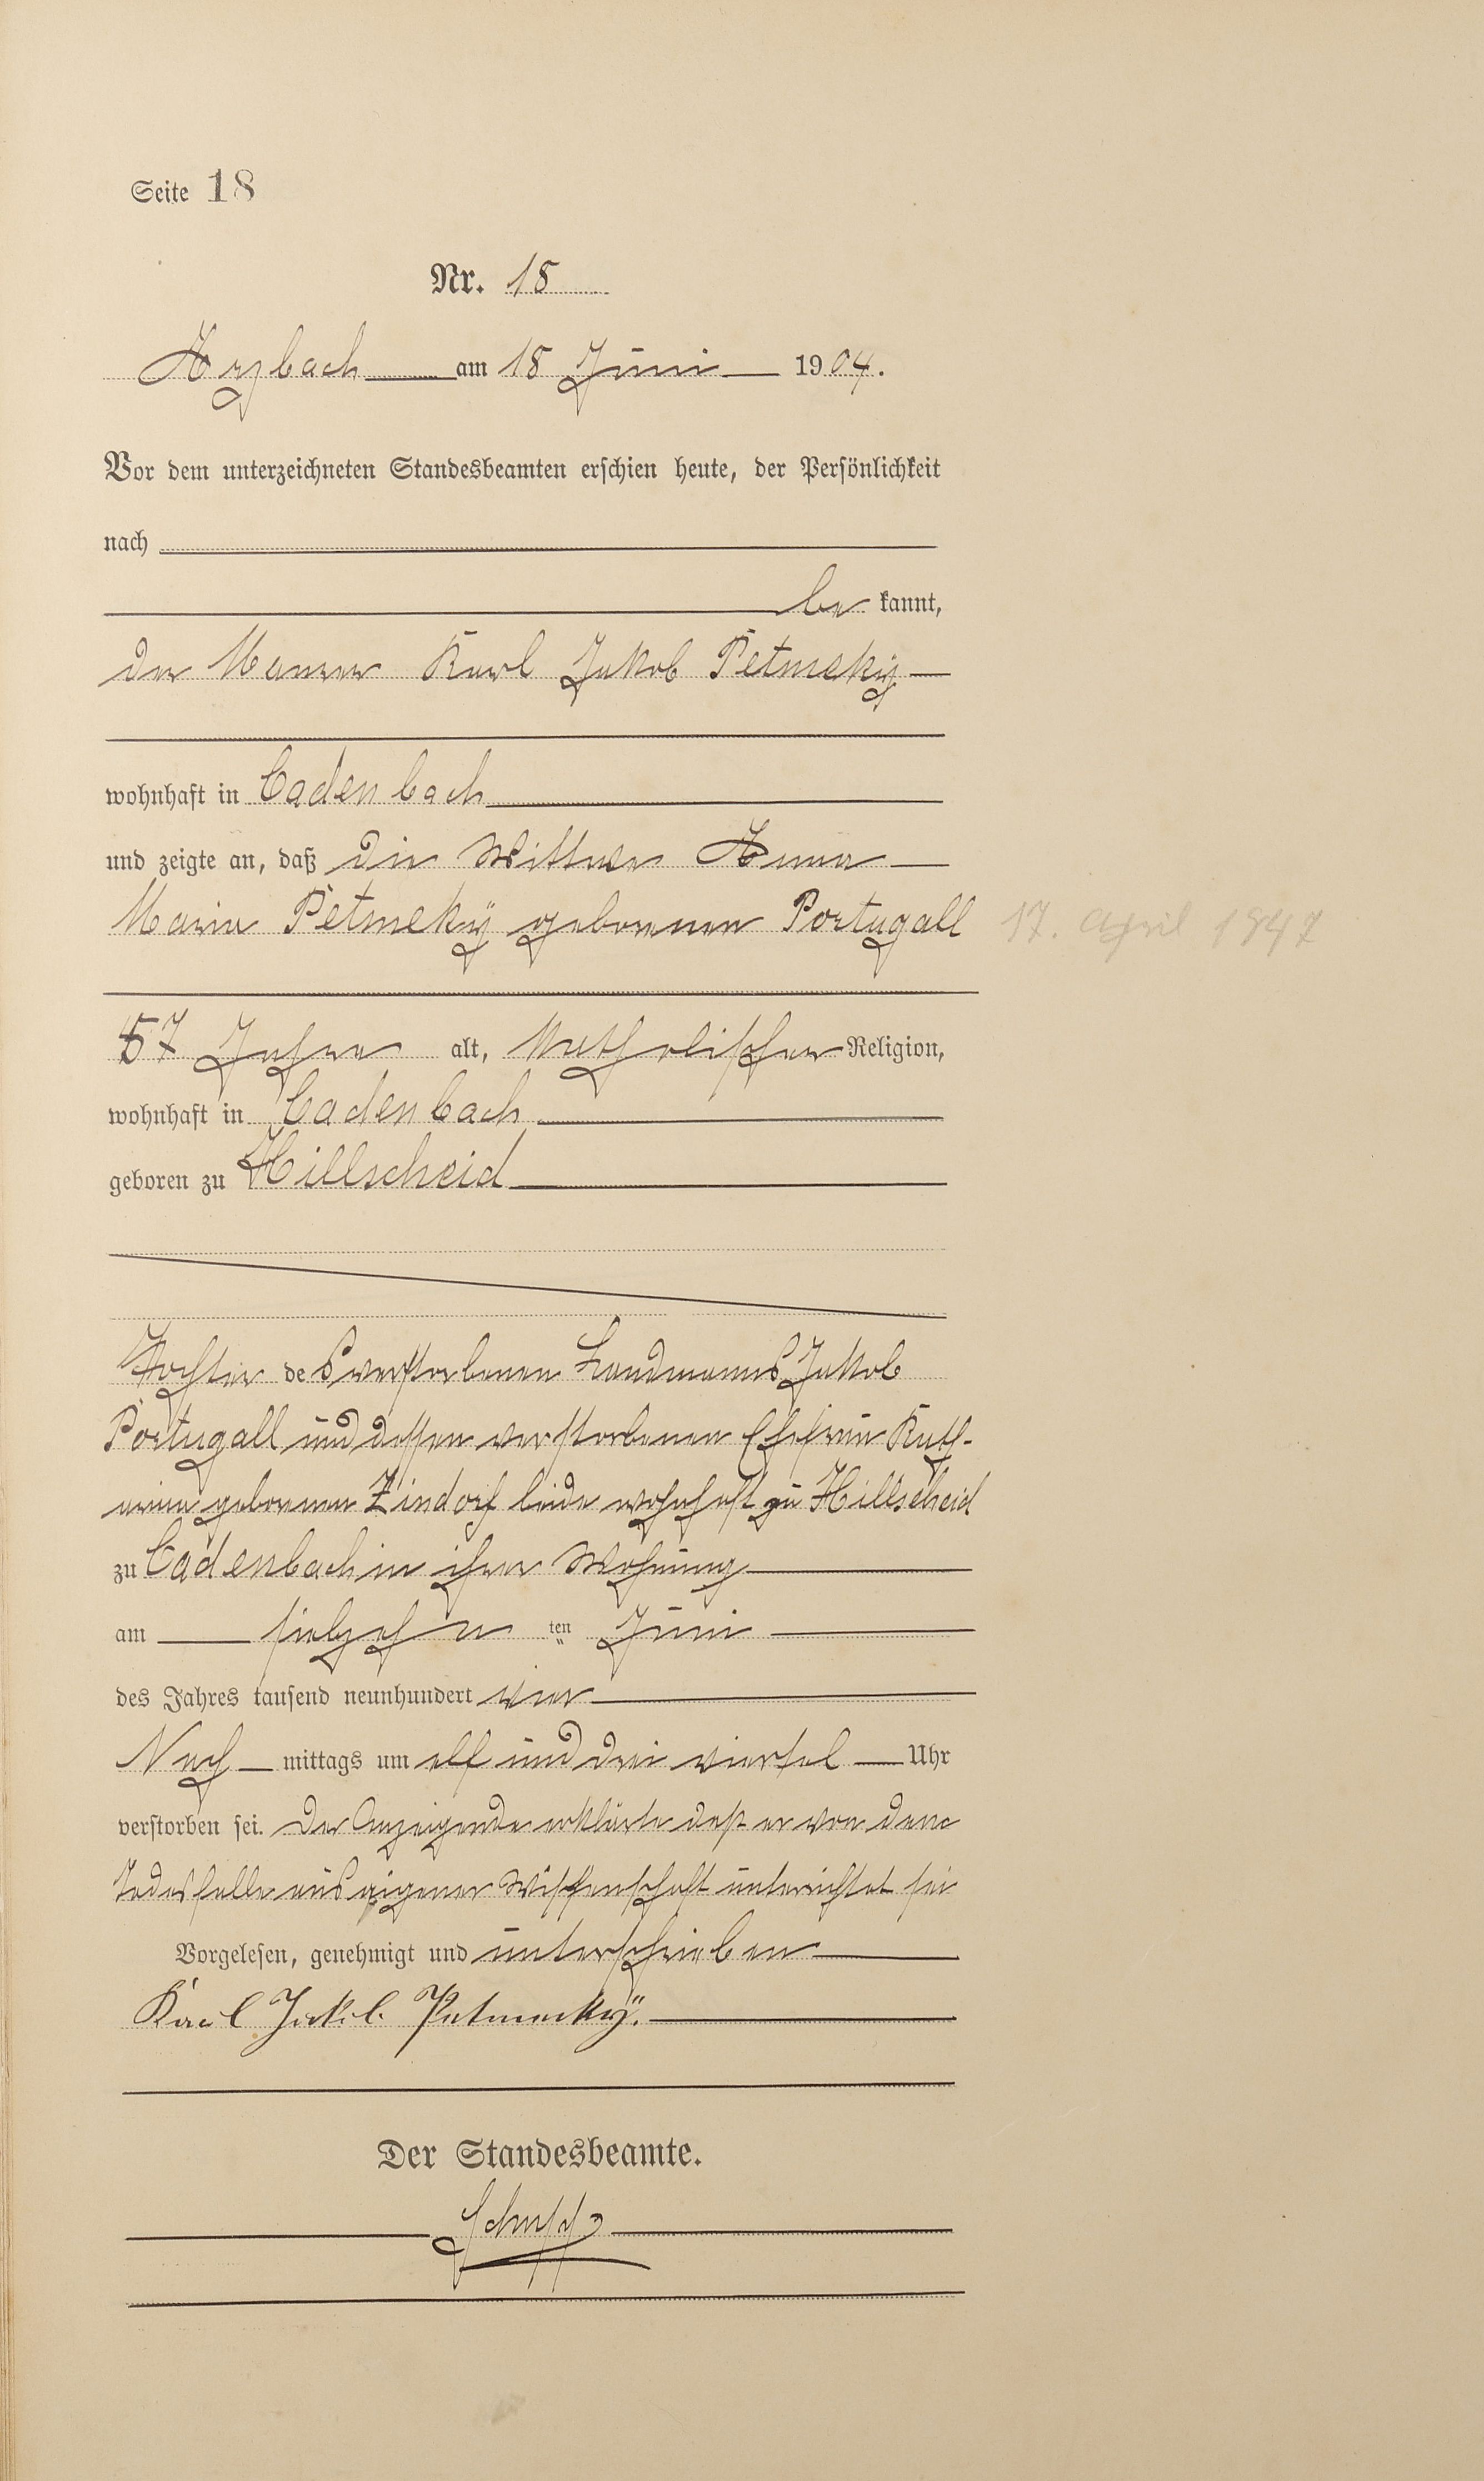 Seite 18
Nr. 18
Arzbach am 18 Juni 1904.
Vor dem unterzeichneten Standesbeamten erschien heute, der Persönlichkeit
nach
be kannt,
der Maurer Karl Jakob Petmeky
wohnhaft in Cadenbach
und zeigte an, daß die Wittwe Anna
Maria Petmekÿ geborenen Portugall 17. April 1847
57 Jahre alt, katholischer Religion,
wohnhaft in Cadenbach
geboren zu Hillscheid
Tochter des verstorbenen Landmanns Jakob
Portugall und dessen verstorbenen Ehefrau Kath-
arina geborenen Zindorf beide wohnhaft zu Hillscheid
zu Cadenbach in ihrer Wohnung
am siebzehn ten Juni
des Jahres tausend neunhundert vier
Nach mittags um elf und drei viertel Uhr
verstorben sei. Der Anzeigende erklärte daß er von dem
Todesfalle aus eigener Wissenschaft unterrichtet sei
Vorgelesen, genehmigt und unterschrieben
Karl Jakob Petmecky.
Der Standesbeamte.